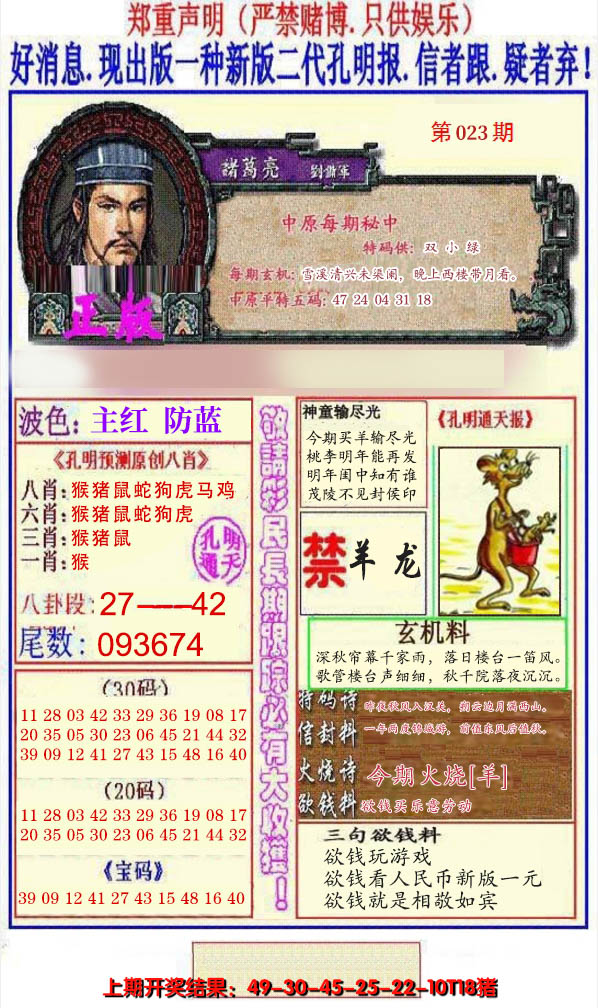 郑重声明（严禁赌博.只供娱乐）
好消息.现出版一种新版二代孔明报.信者跟.疑者弃！
第023期
諸葛亮
中原每期秘中
特码供：双 小 绿
每期玄机：雪溪清兴未渠阑，晚上西楼带月看。
中原平特五码：47 24 04 31 18
正版
波色：主红 防蓝
《孔明预测原创八肖》
八肖：猴猪鼠蛇狗虎马鸡
六肖：猴猪鼠蛇狗虎
三肖：猴猪鼠
一肖：猴
孔明
通天
八卦段：27——42
尾数：093674
（30码）
11 28 03 42 33 29 36 19 08 17
20 35 05 30 23 06 45 21 44 32
39 09 12 41 27 43 15 48 16 40
（20码）
11 28 03 42 33 29 36 19 08 17
20 35 05 30 23 06 45 21 44 32
《宝码》
39 09 12 41 27 43 15 48 16 40
敬請彩民長期跟踪必有大收獲！
神童输尽光
今期买羊输尽光
桃李明年能再发
明年闺中知有谁
茂陵不见封侯印
《孔明通天报》
禁羊龙
玄机料
深秋帘幕千家雨，落日楼台一笛风。
歌管楼台声细细，秋千院落夜沉沉。
特码诗 昨夜秋风入汉关，朔云边月满西山。
信封料 一年两度锦城游，前值东风后值秋。
火烧诗 今期火烧[羊]
欲钱料 欲钱买乐意劳动
三句欲钱料
欲钱玩游戏
欲钱看人民币新版一元
欲钱就是相敬如宾
上期开奖结果：49-30-45-25-22-10T18猪